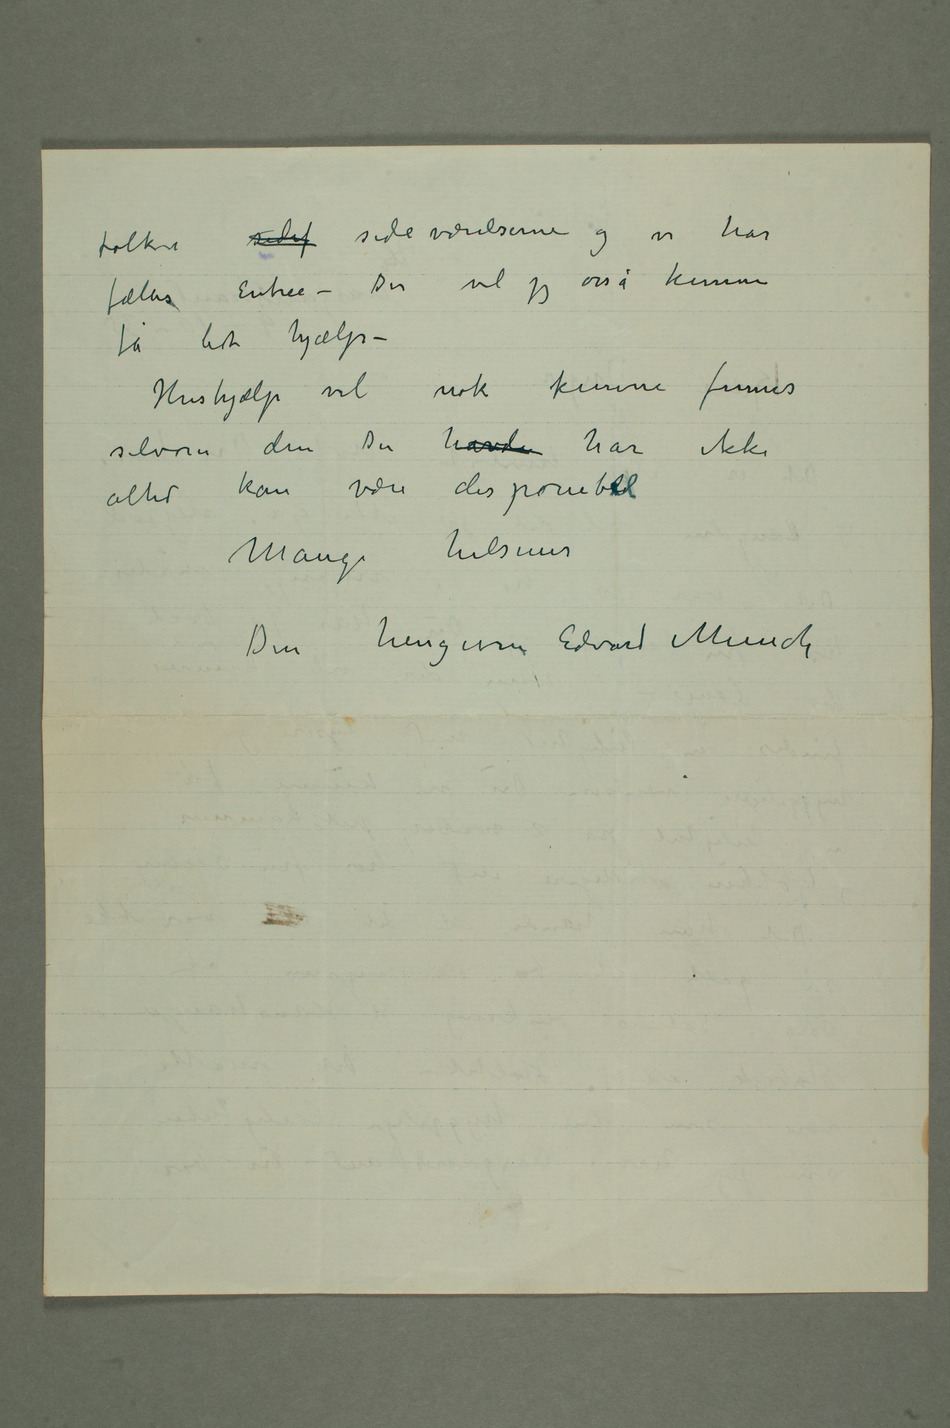 folkene sideværelserne og vi har
fælles Entree – Der vil jeg også kunne
få lidt hjælp –
Hushjælp vil nok kunne finnes
selvom den Du havde har ikke
altid kan være disponibel
Mange hilsener
Din hengivne Edvard Munch